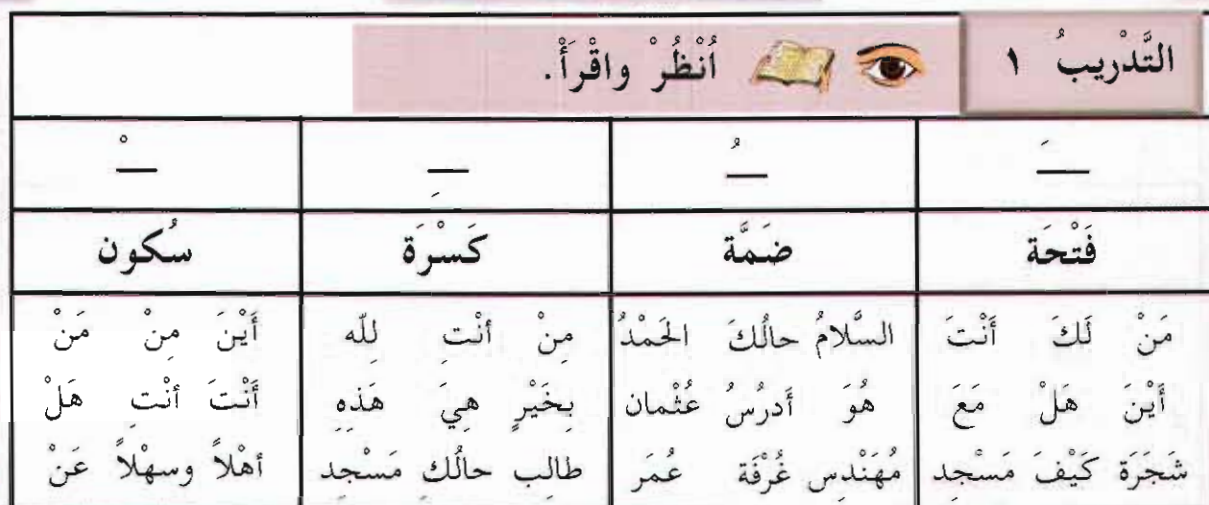 التَّدْرِيبُ ١ اُنْظُرْ واقْرَأْ.
ـَ ـُ ـِ ـْ
فَتْحَة ضَمَّة كَسْرَة سُكون
مَنْ لَكَ أَنْتَ السَّلامُ حالُكَ الحَمْدُ مِنْ أنْتِ لِلّه أَيْنَ مِنْ مَنْ
أَيْنَ هَلْ مَعَ هُوَ أَدرُسُ عُثْمان بِخَيْرٍ هِيَ هَذِهِ أَنْتَ أنْتِ هَلْ
شَجَرَة كَيْفَ مَسْجد مُهَنْدِس غُرْفَة عُمَر طالِب حالُكِ مَسْجِد أهْلاً وسهْلاً عَنْ